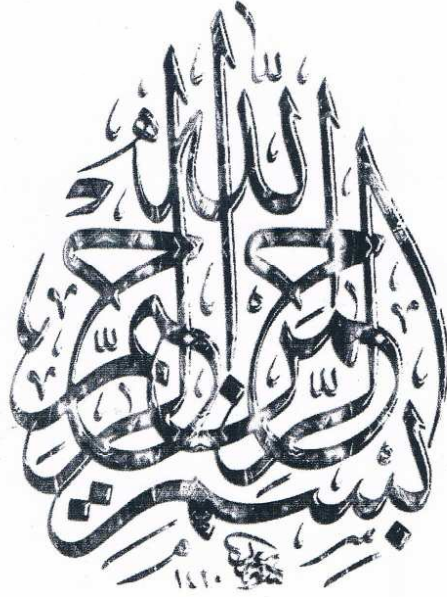 بسم الله الرحمن الرحيم
١٤١٠